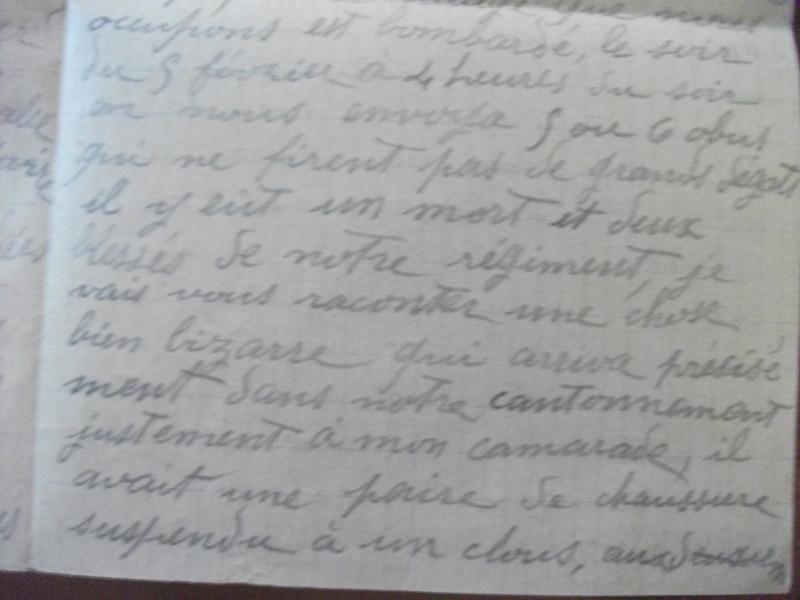 que nous
occupons est bombardé, le soir
du 5 février a 4 heures du soir
on nous envoya 5 ou 6 obus
qui ne firent pas de grands dégats
il y eut un mort et deux
blessés de notre régiment, je
vais vous raconter une chose
bien bizarre qui arriva précisé
ment dans notre cantonnement
justement à mon camarade, il
avait une paire de chaussure
suspendu à un clous,